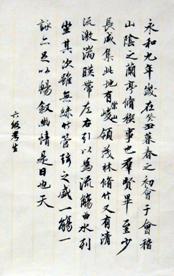 永和九年歲在癸丑暮春之初會于會稽
山陰之蘭亭脩稧事也群賢畢至少
長咸集此地有崇山峻領茂林脩竹又有清
流激湍暎帶左右引以為流觴曲水列
坐其次雖無絲竹管弦之盛一觴一
詠亦足以暢敘幽情是日也天
六級考生